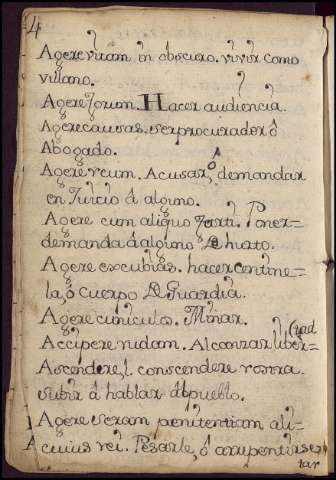 4
Agere vitam in obscuro. vivir como
villano.
Agere forum. Hacer audiencia.
Agere causas. ser procurador ó
Abogado.
Agere reum. Acusar, ó demandar
en Juicio á alguno.
Agere cum aliquo furti. Poner
demanda á alguno De hurto.
Agere escubias. hacer centine=
la, ó Cuerpo De Guardia.
Agere cuniculos. Minar.
Accipere rudam. Alcanzar liber=
(tad
Ascendere, l. conscendere rostra.
subir á hablar al pueblo.
Agere seram penitentiam ali=
cuius rei. Pesarle, ó arrepentirse,
tar